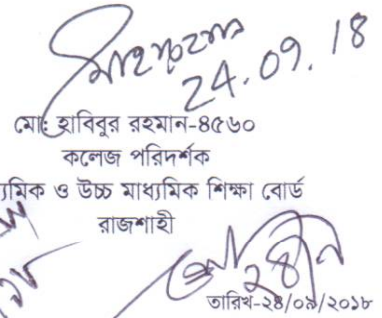 24.09.18
মোঃ হাবিবুর রহমান-৪৫৬০
কলেজ পরিদর্শক
্যমিক ও উচ্চ মাধ্যমিক শিক্ষা বোর্ড
রাজশাহী
তারিখ-২৪/০৯/২০১৮